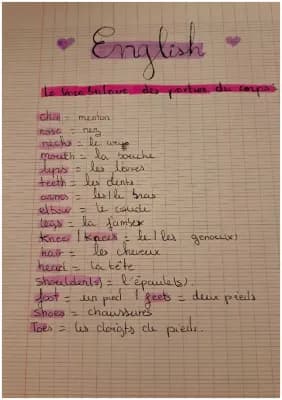 English
Le vocabulaire des parties du corps
chin = menton
nose = nez
necks = le
mouth = la bouche
lips = les lèvres
teeth = les dents
arms = les/le bras
elbow = le coude
legs = la jambes
Knee / Knees = le/les genoux)
hair = les cheveux
head = la tête
Shoulder(s) = l'épaule(s).
foot = un pied / feets = deux pieds
Shoes = chaussures
Toes = les doigts de pieds.